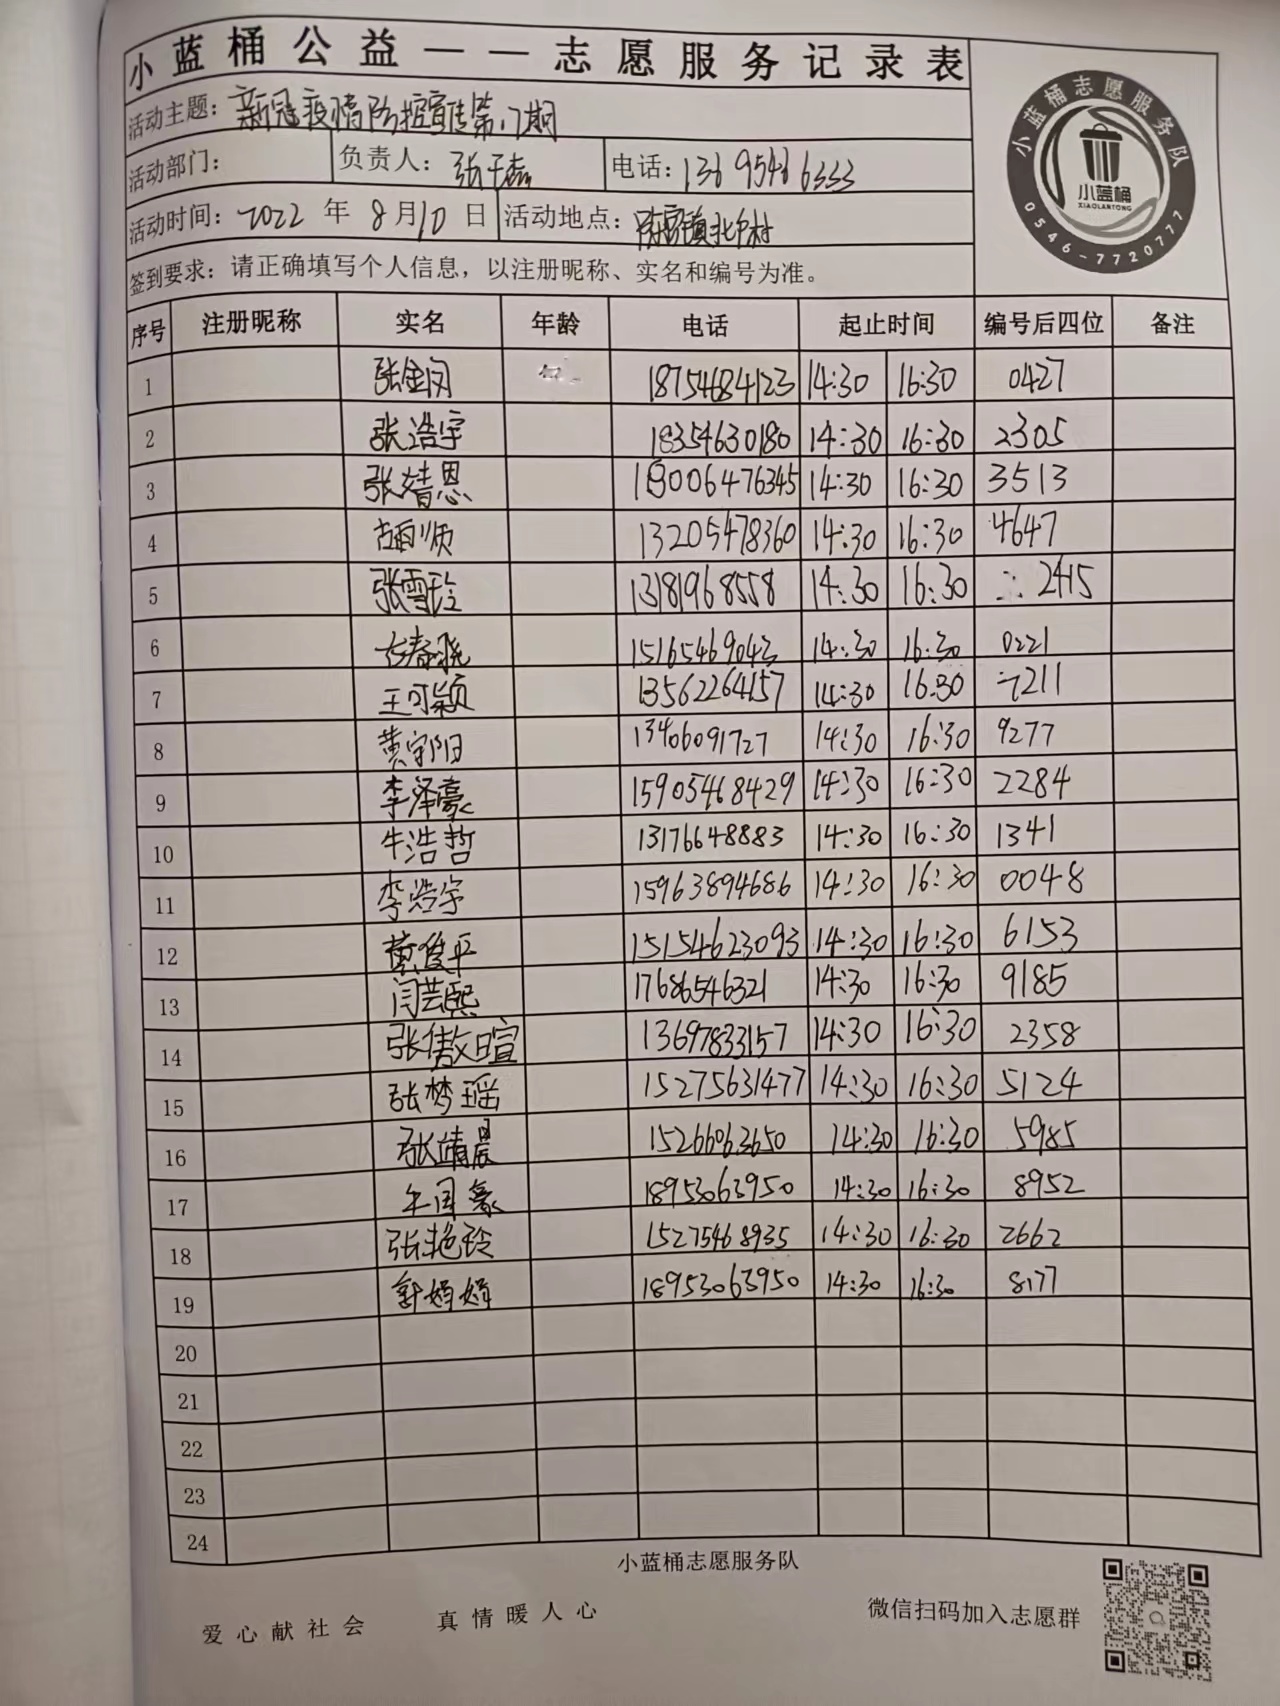 小蓝桶公益——志愿服务记录表
活动主题：新冠疫情防控宣传第17期
活动部门： 负责人：张 电话：13695466333
活动时间：2022年8月10日 活动地点：陈官镇北卢村
签到要求：请正确填写个人信息，以注册昵称、实名和编号为准。
小蓝桶志愿服务队
小蓝桶
XIAOLANTONG
0546-7720777
序号 注册昵称 实名 年龄 电话 起止时间 编号后四位 备注
1 张金闵 18754684123 14:30 16:30 0427
2 张浩宇 18354630180 14:30 16:30 2305
3 张婧恩 18006476345 14:30 16:30 3513
4 13205478360 14:30 16:30 4647
5 张雪玲 13181968558 14:30 16:30 2415
6 15165469043 14:30 16:30 0221
7 王可颖 13562264157 14:30 16:30 7211
8 黄宇阳 13406091727 14:30 16:30 9277
9 李泽豪 15905468429 14:30 16:30 2284
10 牛浩哲 13176648883 14:30 16:30 1341
11 李浩宇 15963894686 14:30 16:30 0048
12 黄俊平 15154623093 14:30 16:30 6153
13 闫芸熙 17686546321 14:30 16:30 9185
14 张傲暄 13697833157 14:30 16:30 2358
15 张梦瑶 15275631477 14:30 16:30 5124
16 张靖晨 15266063650 14:30 16:30 5985
17 18953063950 14:30 16:30 8952
18 张艳玲 15275468935 14:30 16:30 2662
19 娟娟 18953063950 14:30 16:30 8177
20
21
22
23
24
小蓝桶志愿服务队
爱心献社会 真情暖人心 微信扫码加入志愿群